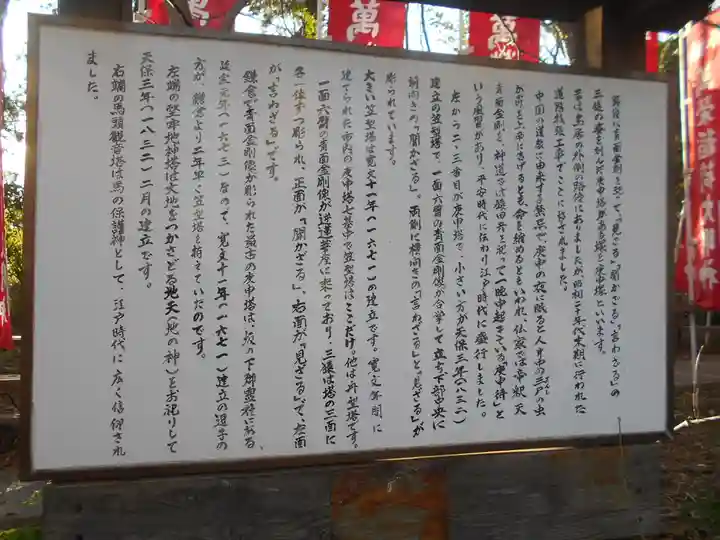 萬
萬
萬
路傍に青面金剛を祀って「見ざる」「聞かざる」「言わざる」の
三猿の姿を刻んだ庚申塔がある塚を庚申塚といいます。
昔は鳥居の外側の路傍にありましたが昭和三十年代末期に行われた
道路拡張工事でここに移されました。
中国の道教に由来する禁忌で、庚申の夜に眠ると人身中の三尸の虫
が罪を上帝に告げるとも命を縮めるともいわれ、仏家では帝釈天
青面金剛を、神道では猿田彦を祀って一晩中起きている庚申待と
いう風習があり、平安時代に伝わり江戸時代に盛行しました。
左から二・三番目が庚申塔で、小さい方が天保三年(一八三二)
建立の笠型塔で、一面六臂の青面金剛像が合掌して立ち下部中央に
前向きの「聞かざる」、両側に横向きの「言わざる」と「見ざる」が
彫られています。
大きい笠型塔は寛文十一年(一六七一)の建立です。寛文年間に
建てられた市内の庚申塔七基中で笠型塔はここだけ。他は舟型塔です。
一面六臂の青面金剛像が逆蓮華座に乗っており、三猿は塔の三面に
一体ずつ彫られ、正面が「聞かざる」、右面が「見ざる」で、左面
が「言わざる」です。
鎌倉で青面金剛像が彫られた最古の庚申塔は、坂の下御霊社にある
延宝元年(一六七三)なので、寛文十一年(一六七一)建立の逗子の
方が、鎌倉より二年早く笠型塔を持えていたのです。
左端の堅牢地神塔は大地をつかさどる地天(地の神)とお祀りして
天保三年(一八三二)二月の建立です。
右端の馬頭観音塔は馬の保護神として、江戸時代に広く信仰され
ました。